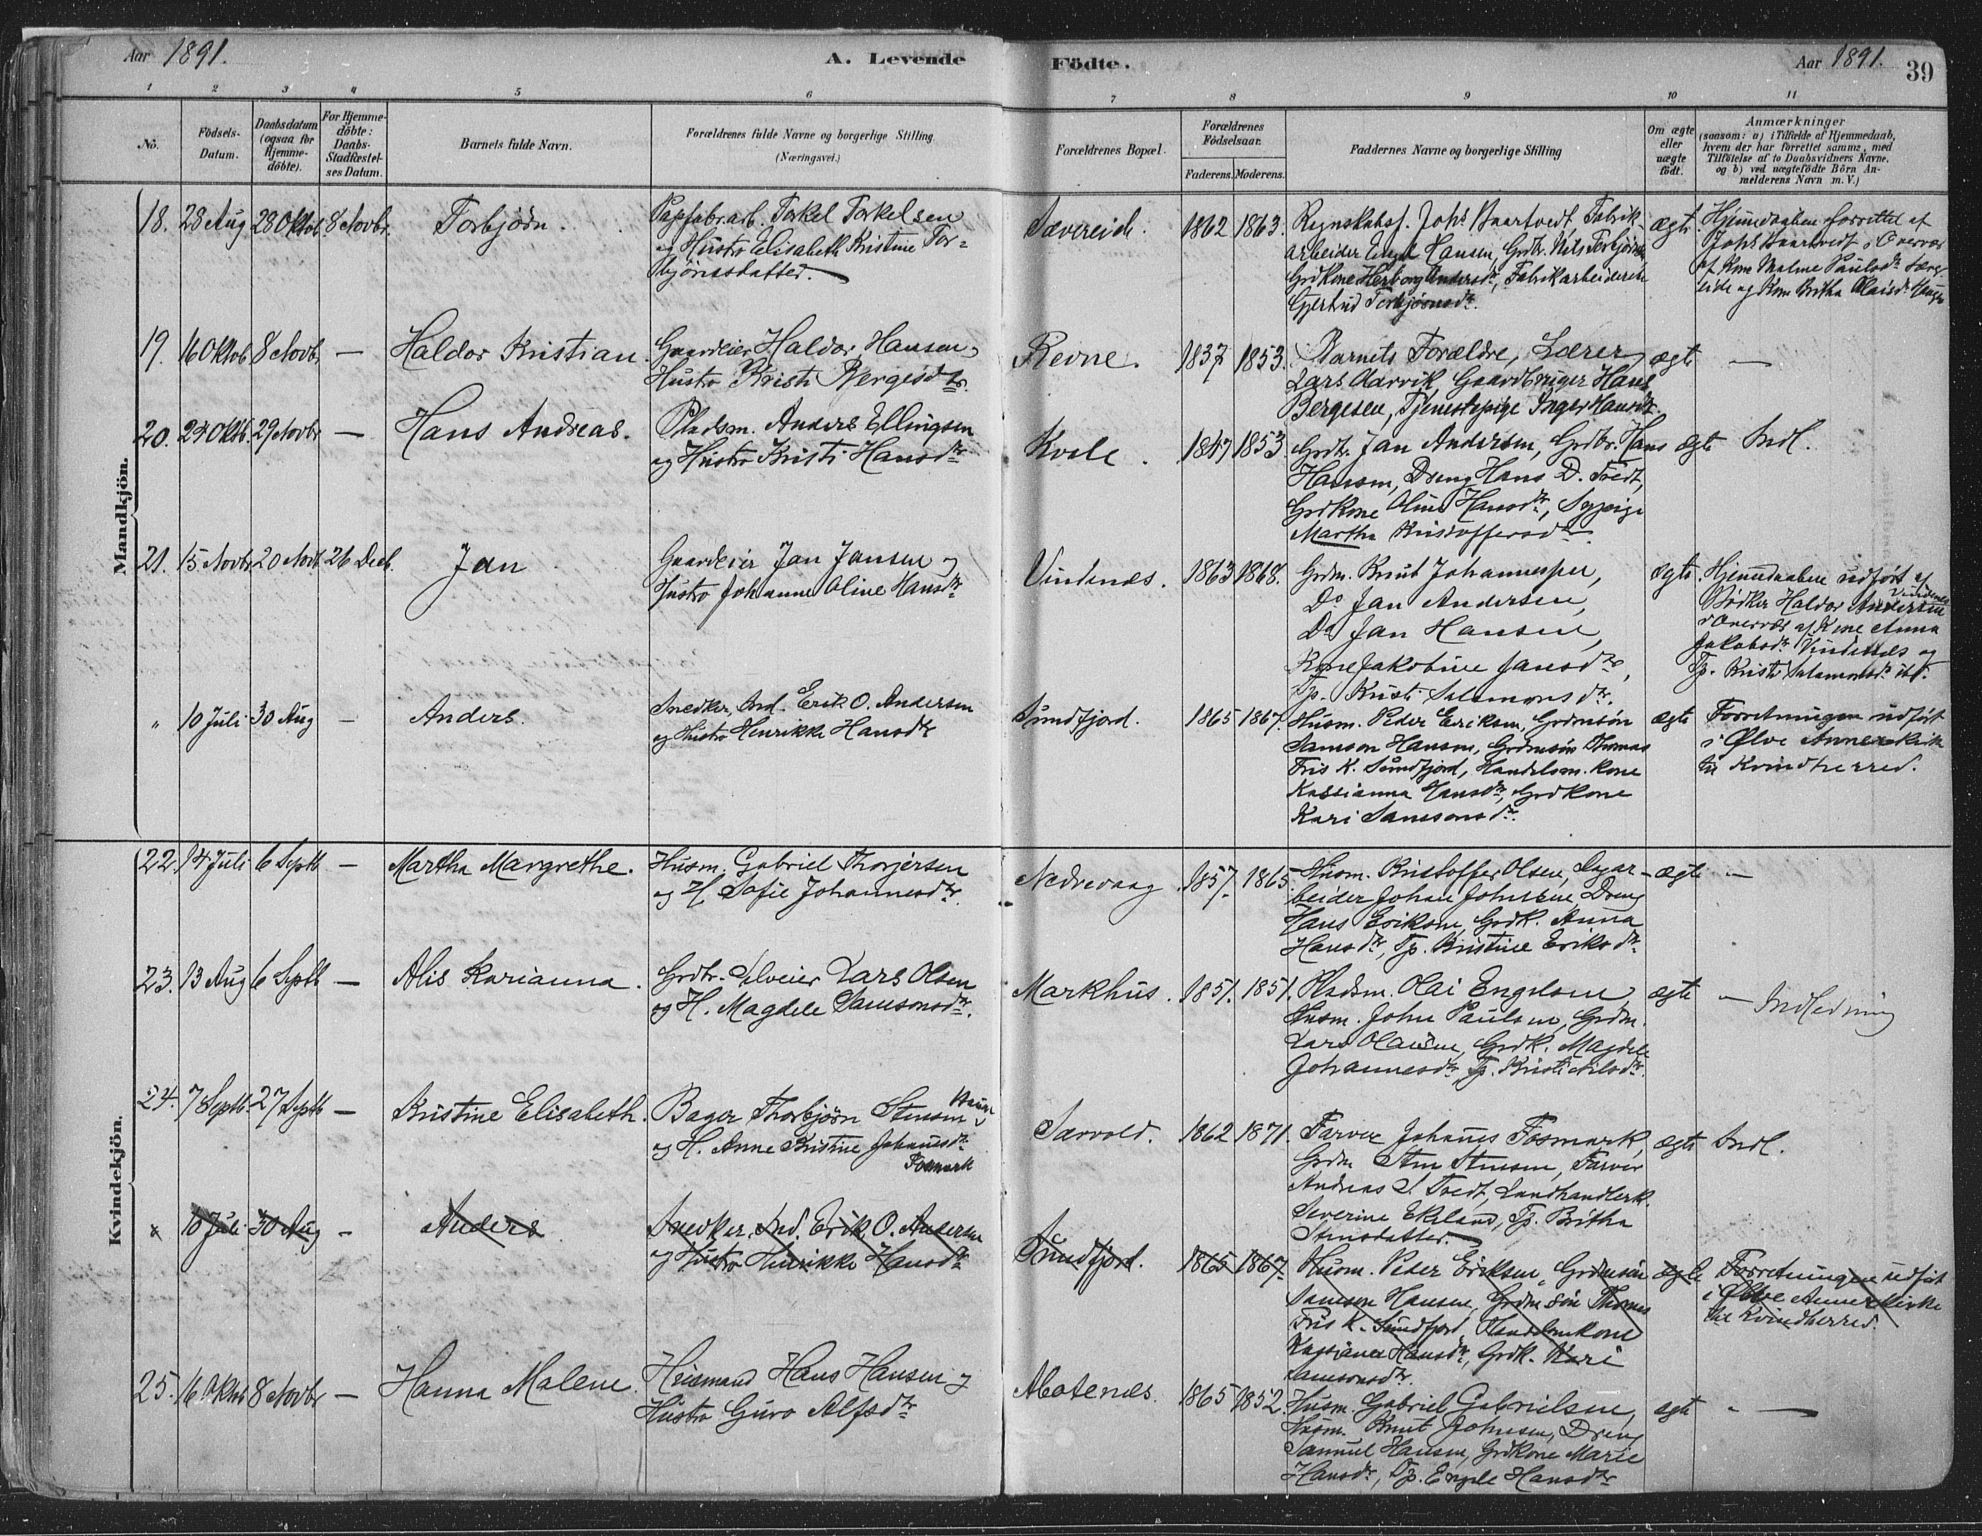 Aar 1891.
A. Levende
Födte.
Aar 1891.
39
1 2 3 4 5 6 7 8 9 10 11
No.
Födsels-Datum.
Daabsdatum (ogsaa for Hjemme-döbte).
For Hjemme-döbte: Daabs-Stadfæstel-ses Datum.
Barnets fulde Navn.
Forældrenes fulde Navne og borgerlige Stilling (Næringsvei.)
Forældrenes Bopæl.
Forældrenes Födselsaar.
Faderens. Moderens.
Faddernes Navne og borgerlige Stilling
Om ægte eller uægte födt.
Anmærkninger
(saasom: a) i Tilfælde af Hjemmedaab,
hvem der har forrettet samme, med
Tilföielse af to Daabsvidners Navne.
og b) ved uægtefödte Börn An-
melderens Navn m. V.)
Mandkjön.
18. 28 Aug 28 Oktob 8 Novbr. Torbjørn.
Papfabrarb. Torkel Torkelsen
og Hustro Elisabeth Kristine Tor-
bjørnsdatter.
Sævereide. 1862 1863.
Regnskabsf. Johs Haartvedt, Fabrik-
arbeider Engel Hansen, Grdbr. Nils Torbjørnsen
Grdkone Herborg Andersdr, Fabrikarbeiderske
Gjertrud Torbjørnsdr.
ægte
Hjemdaaben forrettet af
Johs Haartvedt i Overvær
af Kone Malene Paulsdr Sæve-
reide og Kone Britha Olaisdr Hauge
19. 16 Oktob. 8 Novb. — Haldor Kristian.
Gaardeier Haldor Hansen,
Hustro Kristi Bergesdtr.
Revne. 1837 1853.
Barnets Forældre, Lærer
Lars Aarvik, Gaardbruger Hans
Bergesen, Tjenestepige Inger Hansdtr.
ægte —
20. 24 Oktb. 29 Novbr — Hans Andreas.
Pladsm. Anders Ellingsen
og Hustro Kristi Hansdtr
Kvale. 1847 1853.
Grdbr. Jan Andersen, Grdbr. Hans
Hansen, Dreng Hans D. Tvedt,
Grdkone Oline Hansdtr, Sypige
Martha Kristoffersdtr.
ægte Indl.
21. 15 Novbr 20 Novb. 26 Decb. Jan
Gaardeier Jan Jansen og
Hustro Johanne Oline Hansdtr
Vindenes. 1863 1868.
Grdm. Knut Johannessen,
Do Jan Andersen,
Do Jan Hansen,
Kone Jakobine Jansdtr,
Tp. Kristi Salamonsdtr.
ægte
Hjemdaaben udført af
Bødker Haldor Andersen Vindenes
i Overvær af Kone Anna
Jakobsdr Vindenes og
Tp. Kristi Salamonsdr ibd.
" 10 Juli 30 Aug — Anders.
Snedker, Ind. Erik O. Andersen
og Hustro Henrikke Hansdtr
Sundfjord. 1865 1867.
Husm. Peder Eriksen, Grdmsøn
Samson Hansen, Grdmsøn Thomas
Friis K. Sundfjord, Handelsm. kone
Kassianna Hansdtr, Grdkone
Kari Samsonsdtr.
ægte
Forretningen udført
i Ølve Annexkirke
til Kvindherred.
Kvindekjön.
22. 14 Juli 6 Septb — Martha Margrethe.
Husm. Gabriel Thorgersen
og H. Sofie Johannesdtr.
Nedrevaag 1857. 1865.
Husm. Kristoffer Olsen, Dagar-
beider Johan Johnsen, Dreng
Hans Eriksen, Grdk. Anna
Hansdtr, Tp. Kristine Eriksdtr.
ægte —
23. 13 Aug 6 Septb — Alis Karianna.
Grdbr. Selveier Lars Olsen
og H. Magdele Samsonsdtr.
Markhus. 1851. 1851.
Pladsm. Olai Engelsen,
Husm. John Paulsen, Grdm.
Lars Olausen, Grdk. Magdele
Johannesdtr, Tp. Kristi Nilsdtr.
ægte — Indledning
24. 7 Septb. 27 Septb — Kristine Elisabeth.
Bager Thorbjørn Stensen
og H. Anne Kristine Johannesdtr.
Fosmark
Særvold. 1862 1871.
Farver Johannes Fosmark,
Grdm Sten Stensen, Farver
Andreas S. Tvedt, Landhandlersk.
Severine Ekeland, Tp. Britha
Stensdatter.
ægte Indl.
" 10 Juli 30 Aug — Anders
Snedker, Ind. Erik O. Andersen
og Hustro Henrikke Hansdtr
Sundfjord. 1865 1867.
Husm. Peder Eriksen, Grdmsøn
Samson Hansen, Grdmsøn Thomas
Friis K. Sundfjord, Handelsmkone
Kassianna Hansdtr, Grdk. Kari
Samsonsdtr.
ægte
Forretningen udført
i Ølve Annexkirke
til Kvindherred.
25. 16 Oktob 8 Novbr — Hanna Malene.
Husmand Hans Hansen og
Hustro Guro Alfsdtr
Matenæs. 1865 1852.
Husm. Gabriel Gabrielsen,
Husm. Knut Johnsen, Dreng
Samuel Hansen, Grdkone Marie
Hansdtr, Tp. Engele Hansdtr
ægte —